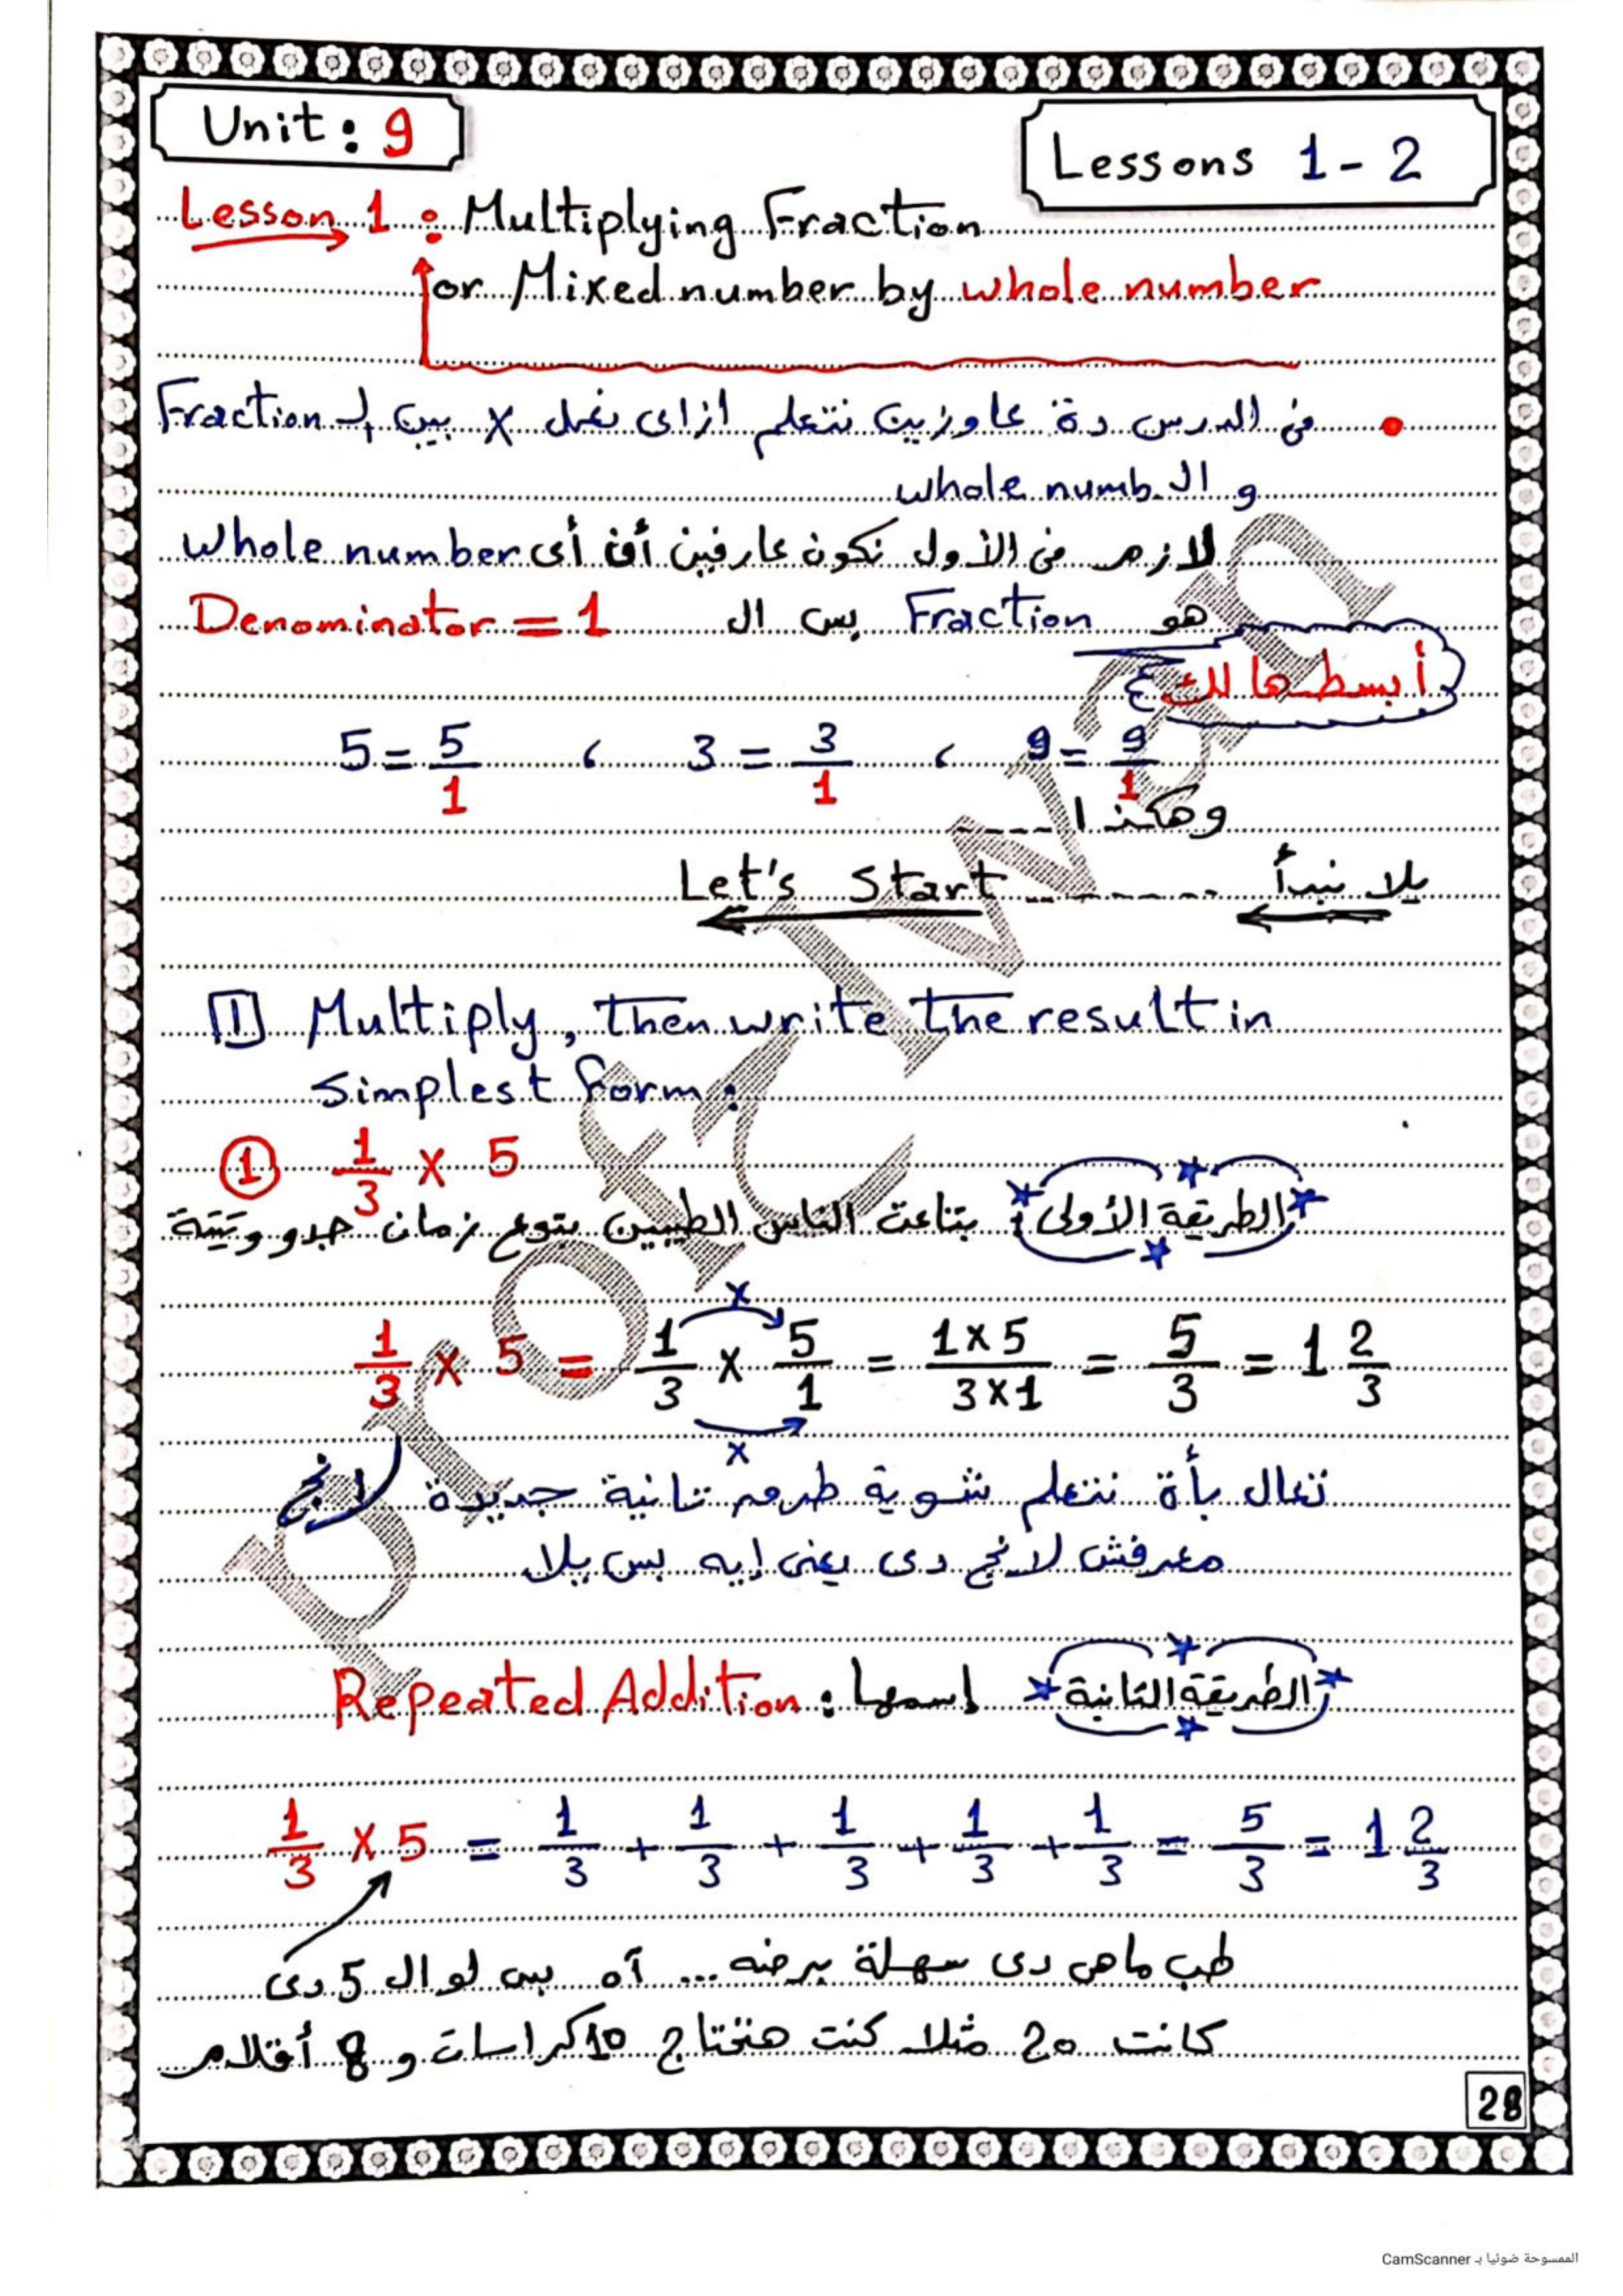 Unit: 9
Lessons 1-2
Lesson 1: Multiplying Fraction
or Mixed number by whole number
• فى الدرس دة عاوزين نتعلم ازاى نعمل × بين الـ Fraction
و الـ whole numb.
لازم فى الأول نكون عارفين أن أى whole number
هو Fraction بس ال Denominator = 1
أبسطهالك
5 = 5/1 ، 3 = 3/1 ، 9 = 9/1
وهكذا ----
يلا نبدأ ------- Let's Start
1 Multiply, Then write The result in
simplest form:
① 1/3 × 5
الطريقة الأولى: بتاعت الناس الطيبين بتوع زمان جدو وتيتة
1/3 × 5 = 1/3 × 5/1 = 1×5/3×1 = 5/3 = 1 2/3
× ×
تعال بأة نتعلم شوية طرق تانية جديدة لانج
معرفش لانج دى يعنى إيه بس يلا
الطريقة الثانية إسمها: Repeated Addition
1/3 × 5 = 1/3 + 1/3 + 1/3 + 1/3 + 1/3 = 5/3 = 1 2/3
طب ماهى دى سهلة برضه... آه بس لو ال 5 دى
كانت 20 مثلا كنت هتحتاج 10 كراسات و 8 أقلام
28
Prof IMAN
الممسوحة ضوئيا بـ CamScanner